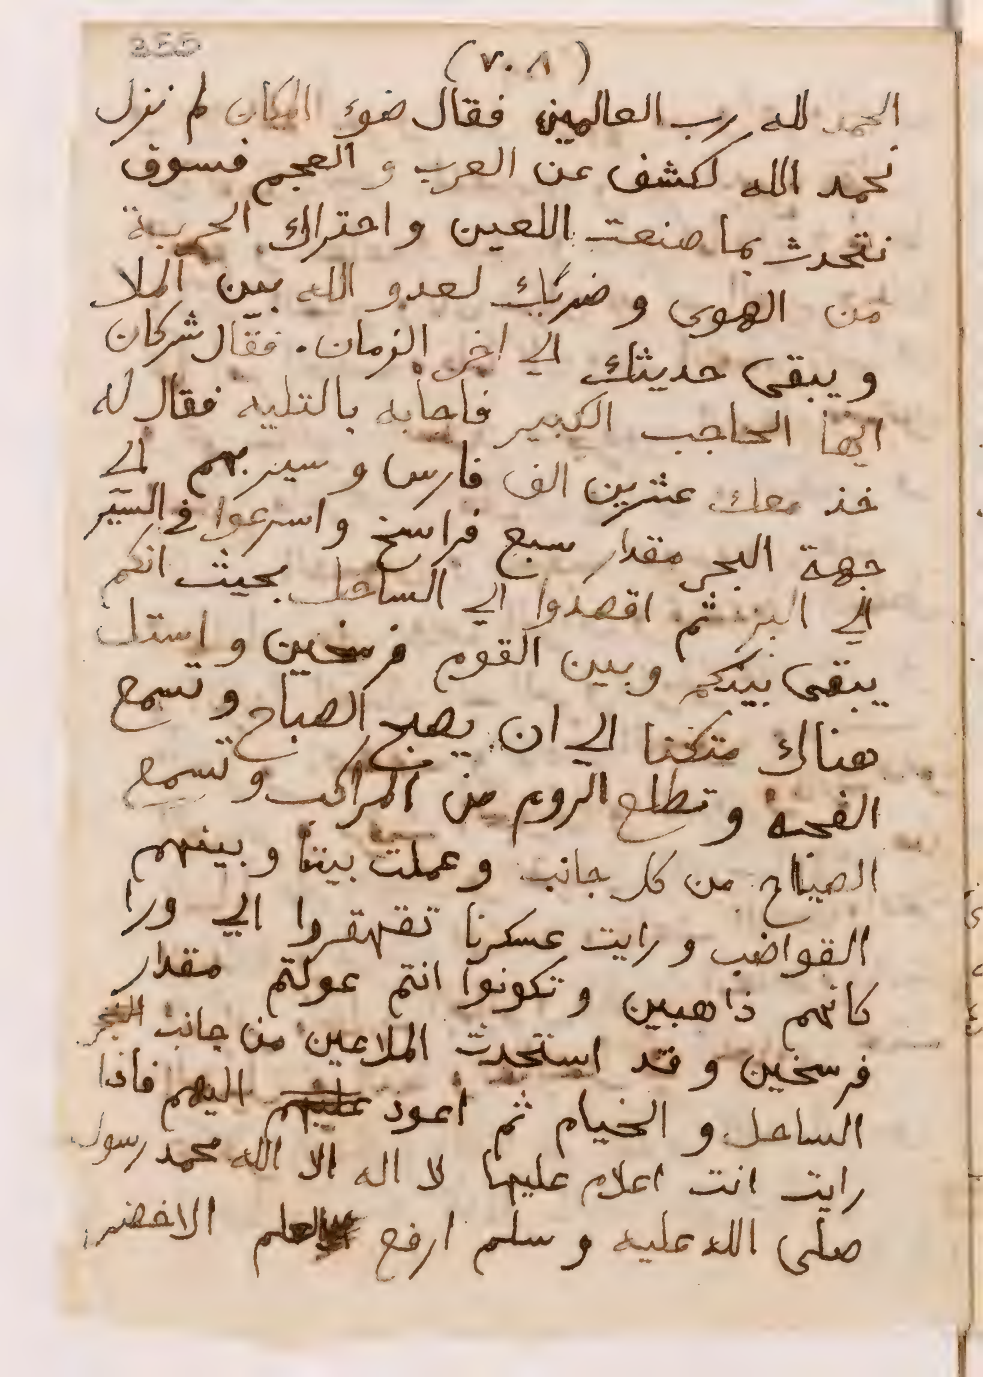 355
(٧٠٨)
الحمد لله رب العالمين فقال ضوء المكان لم نزل
نحمد الله لكشف عن العرب و العجم فسوف
نتحدث بما صنعت اللعين و احتراك الحربة
من الهوى و ضربك لعدو الله بين الملا
و يبقى حديثك الي اخر الزمان. فقال شركان
ايها الحاجب الكبير فاجابه بالتلبيه فقال له
خذ معك عشرين الف فارس و سير بهم الي
جهة البحر مقدار سبع فراسخ و اسرعوا في السير
الي البر ثم اقصدوا الي الساحل بحيث انكم
يبقى بينكم وبين القوم فرسخين و استل
هناك متكنا الي ان يصبح الصباح و تسمع
الفجه و تطلع الروم من المراكب و تسمع
الصياح من كل جانب و عملت بيننا و بينهم
القواضب و رايت عسكرنا تقهقروا الي ورا
كانهم ذاهبين و تكونوا انتم عولتم مقدار
فرسخين و قد استحدث الملاعين من جانب
الساحل و الخيام ثم اعود عليهم اليهم فاذا
رايت انت اعلام عليها لا اله الا الله محمد رسول
صلى الله عليه و سلم ارفع العلم الاخضر